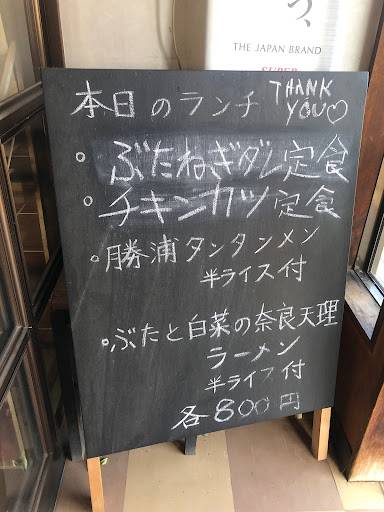 つ、
THE JAPAN BRAND
SUPER
本日のランチ THANK YOU♡
。ぶたねぎダレ定食
。チキンカツ定食
。勝浦タンタンメン
半ライス付
。ぶたと白菜の奈良天理
ラーメン
半ライス付
各800円